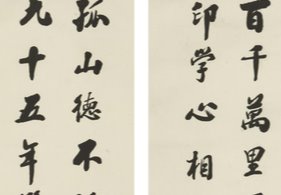 百千萬里
印学心相
孤山德不
九十五年